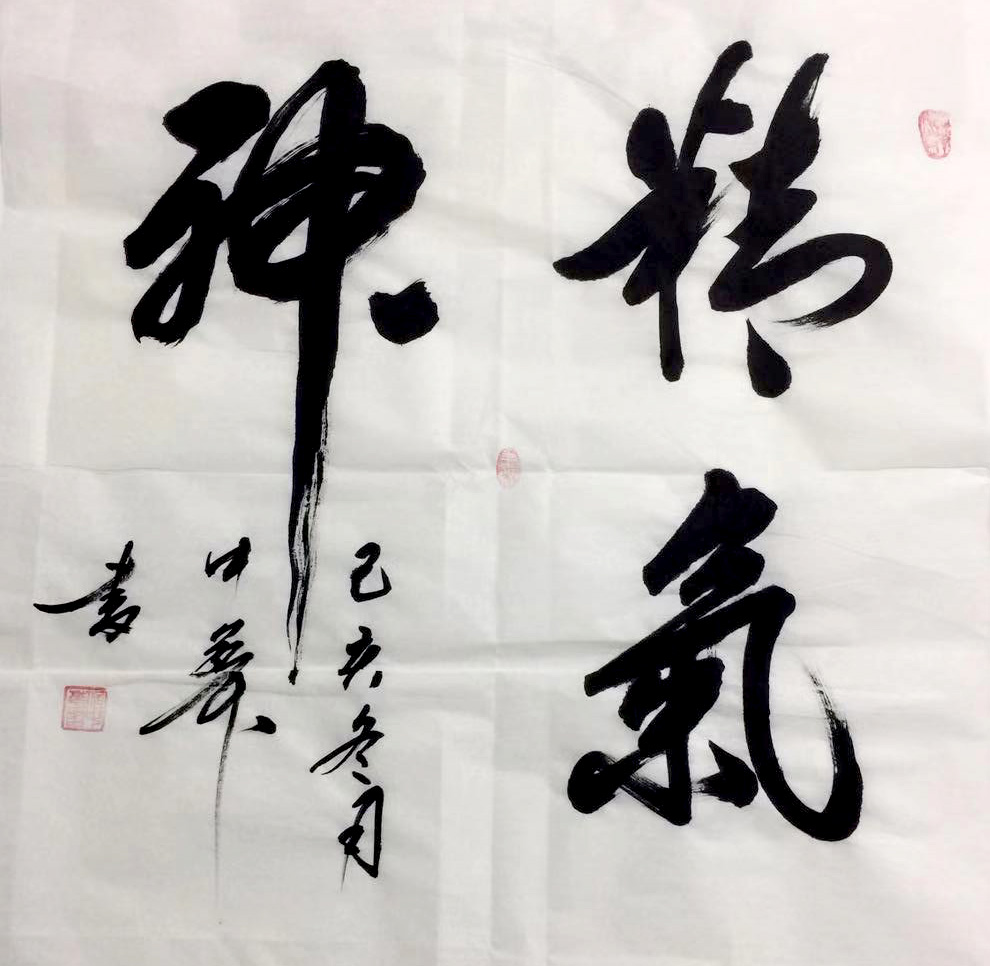 精氣
神
己亥冬月
中華
書